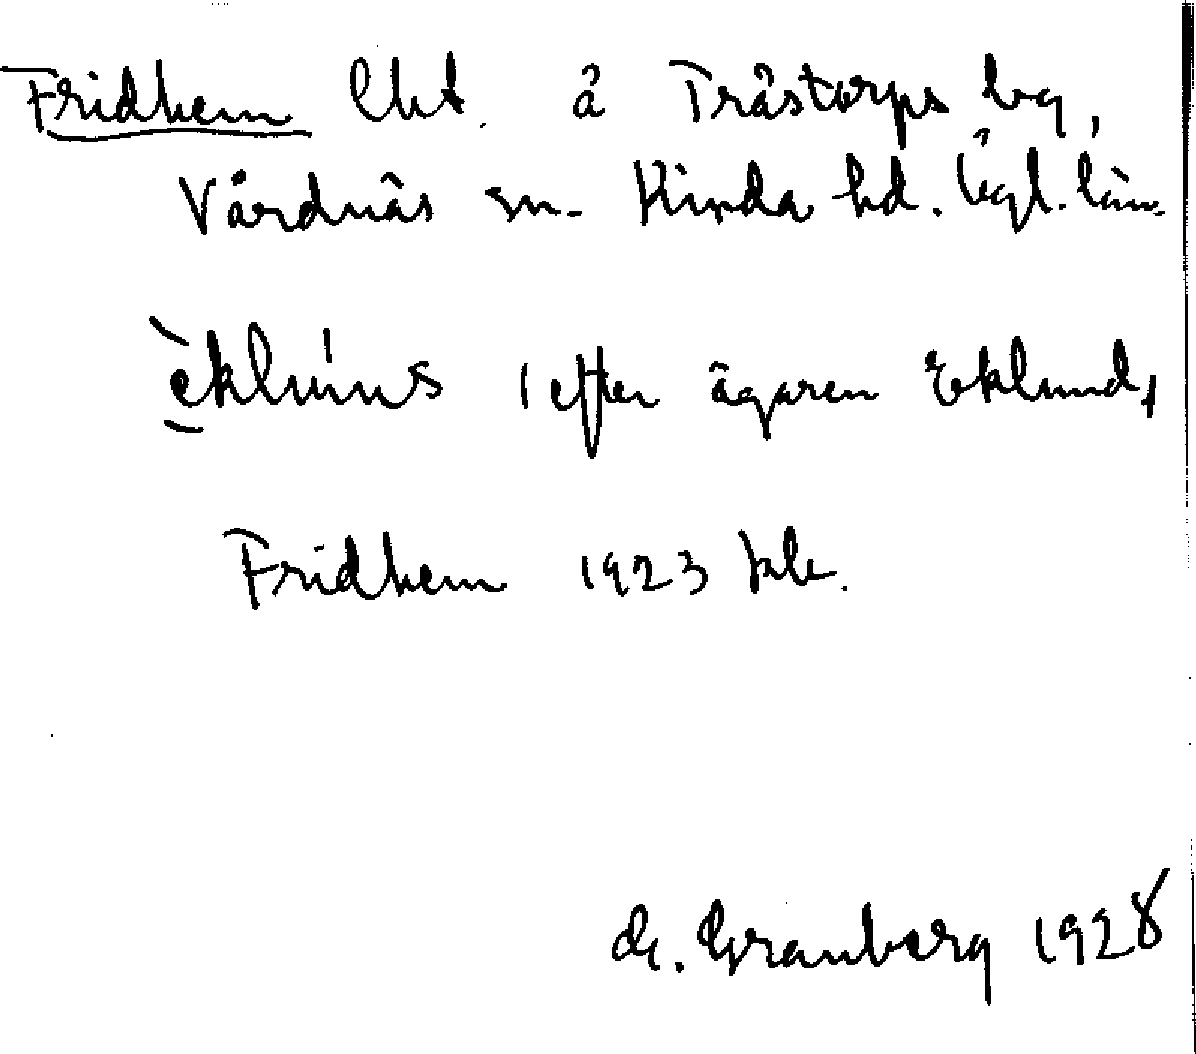 Fridhem lht. å Tråstorps by,
Vårdnäs sn. Kinda hd. Ögl. län.
èklúns (efter ägaren Eklund)
Fridhem 1923 jble.
G. Granberg 1928